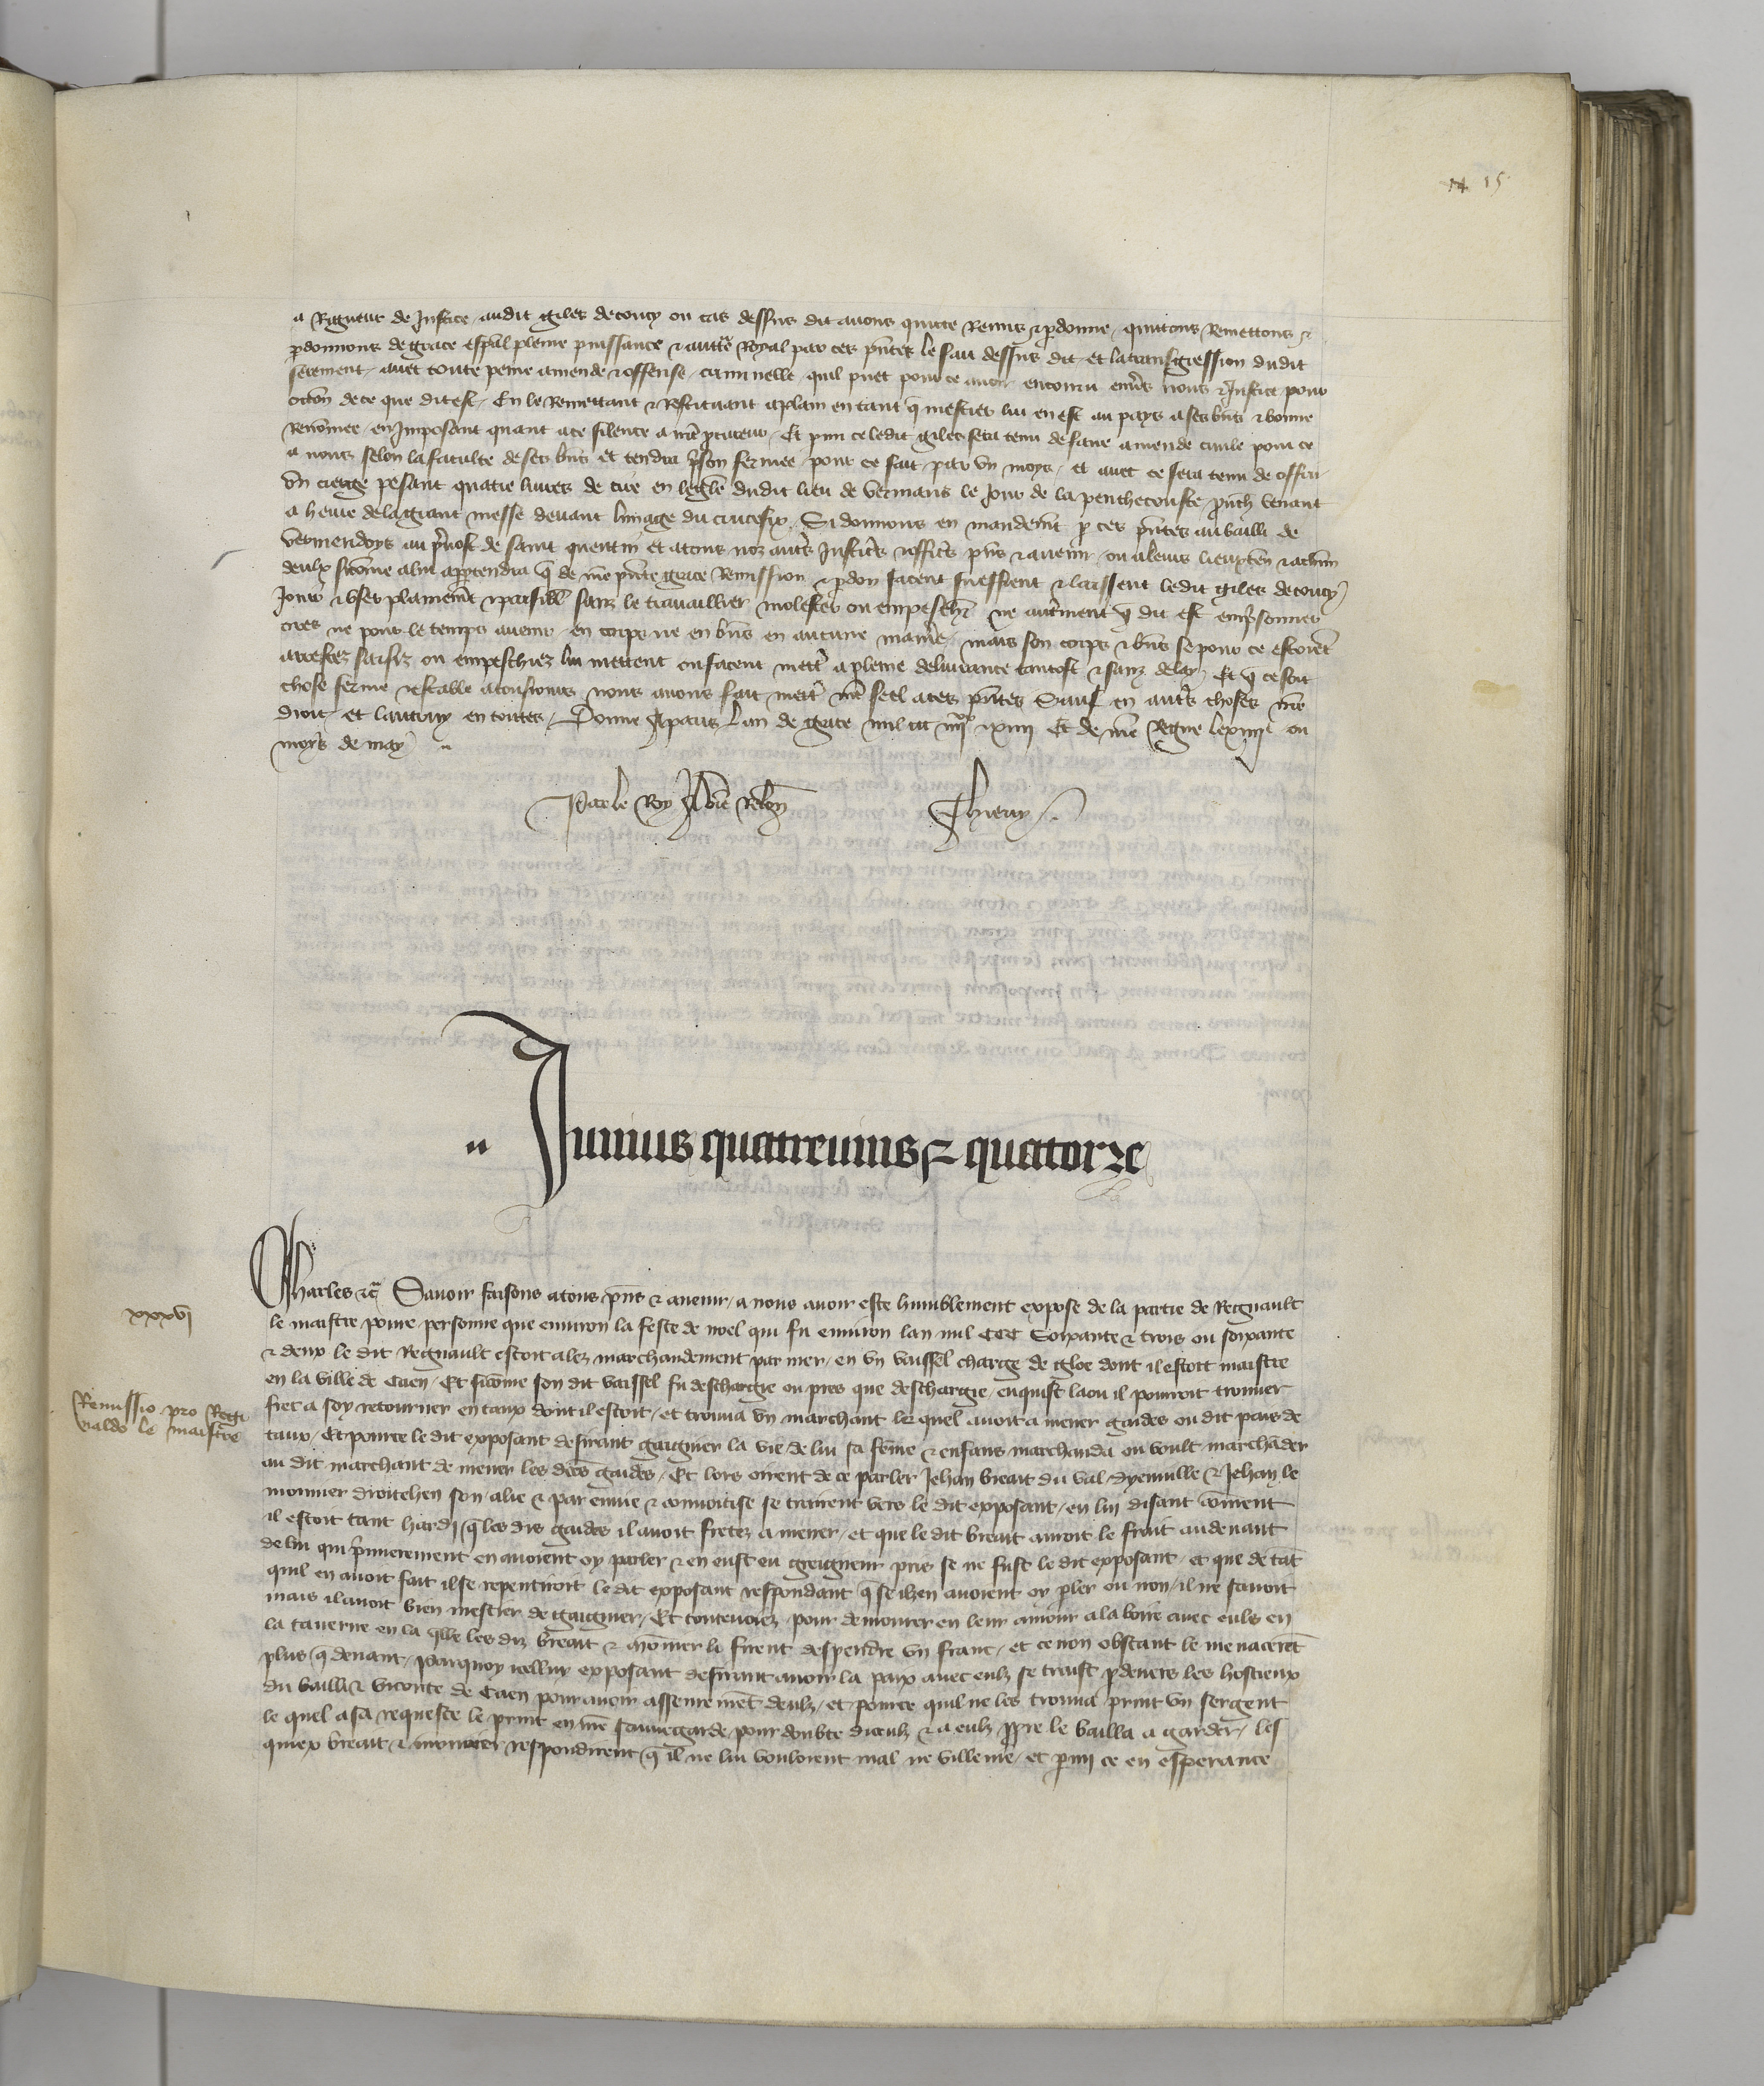 14 15
a Rigueur de Justice audit giles de coucy ou cas dessus dit auons quicte Remis & pdonne, quittons Remettons &
pdonnons de grace espal pleine puissance & auttē Royal par ces pñtes le fait dessus dit et la transgression dudit
serement, auec toute peine amende & offense criminelle quil puet pour ce auoir encouru enuers nous & Justice pour
occon de ce que dit est, En le Remettant & Restituant a plain en tant q̄ mestier lui en est au pays a ses biēs & bonne
Renōmee, en Imposant quant a ce silence a nrē procureur, Et pmi ce ledit giles sera tenu de faire amende ciuile pour ce
a nous selon la faculte de ses biēs et tendra pson fermee pour ce fait par vn moys, et auec ce sera tenu de offrir
vn cierge pesant quatre liures de cire en leglē dudit lieu de vermans le Jour de la penthecouste pūch venant
a heure de la grant messe deuant limage du crucefix, Si donnons en mandemt p ces pñtes au bailli de
vermendoys au puost de saint quentin et a tous noz autrs Justicrs & officrs pñs & auenir ou a leurs lieuxten & a chm
deulx sicōme a lui appartendra q̄ de nrē pñte grace Remission & pdon facent sueffrent & laissent ledit giles de coucy
Jouir & vser plainemt & paisibl sanz le trauaillier molester ou empeschr ne autrment q̄ dit est empsonner
ores ne pour le temps auenir en corps ne en biēs en aucune maniē, mais son corps & biēs se pour ce estoiēt
arrestez saisiz ou empeschiez lui mettent ou facent mettr a pleine deliurance tantost & sanz delay, Et q̄ ce soit
chose ferme & estable a tousiours nous auons fait mettr nrē seel a ces pñtes Sauf en autrs choses nrē
droit et lautruy en toutes, Donne A paris Lan de grace mil ccc iiiixx & xiiii Et de nrē Regne le xiiiie ou
moys de may
Par le Roy A vrē Relon Thierry
Junius quatreuins & quatorze
xxxvi
Charles &c Sauoir faisons a tous pñs & auenir, a nous auoir este humblement expose de la partie de Regnault
le maistre poure personne que enuiron la feste de noel qui fu enuiron lan mil CCC Soixante & trois ou soixante
& deux le dit Regnault estoit alez marchandement par mer, en vn vaissel charge de gloe dont il estoit maistre
en la ville de Caen, Et sicōme son dit vaissel fu deschargie ou pres que deschargie, enquist la ou il pourroit trouuer
fret a soy retourner en caux dont il estoit, et trouua vn marchant le quel auoit a mener gaides ou dit pais de
caux, Et pource le dit exposant desirant gaignier la vie, de lui sa fēme & enfans marchanda ou voult marchāder
au dit marchant de mener les dites gaides, Et lors oirent de ce parler Jehan breart du val dyenuille & Jehan le
monnier droitehen son alie & par enuie & conuoitise se trairent vers le dit exposant, en lui disant cōment
il estoit tant hardi q̄ les dis gaides il auoit fretez a mener, et que le dit breart auroit le frait au deuant
de lui qui pmierement en auoient oy parler & en eust eu greigneur pris se ne fust le dit exposant, et que de tāt
quil en auoit fait il se repentiroit le dit exposant respondant q̄ se ilz en auoient oy pler ou non, il ne sauoit
mais il auoit bien mestier de gaignier, Et touteuoiez, pour demourer en leur amour ala boire auec eulx en
la tauerne en la qlle les diz breart & mōnier li firent despendre vn franc, et ce non obstant le menacerēt
plus q̄ deuant, Parquoy icellui exposant desirant auoir la paix auec eulz se traist pdeuers les hostieux
du bailli & viconte de Caen pour auoir assenremēt deulz, et pource quil ne les trouua print vn sergent
le quel a sa requeste le print en nrē sauuegarde, pour doubte diceulz & a eulz ppre le bailla a garder, les
quiex breart & monnier respondirent q̄ il ne lui vouloient mal ne villenie, et pmi ce en esperance
Remissio pro Regi
naldo le maistre